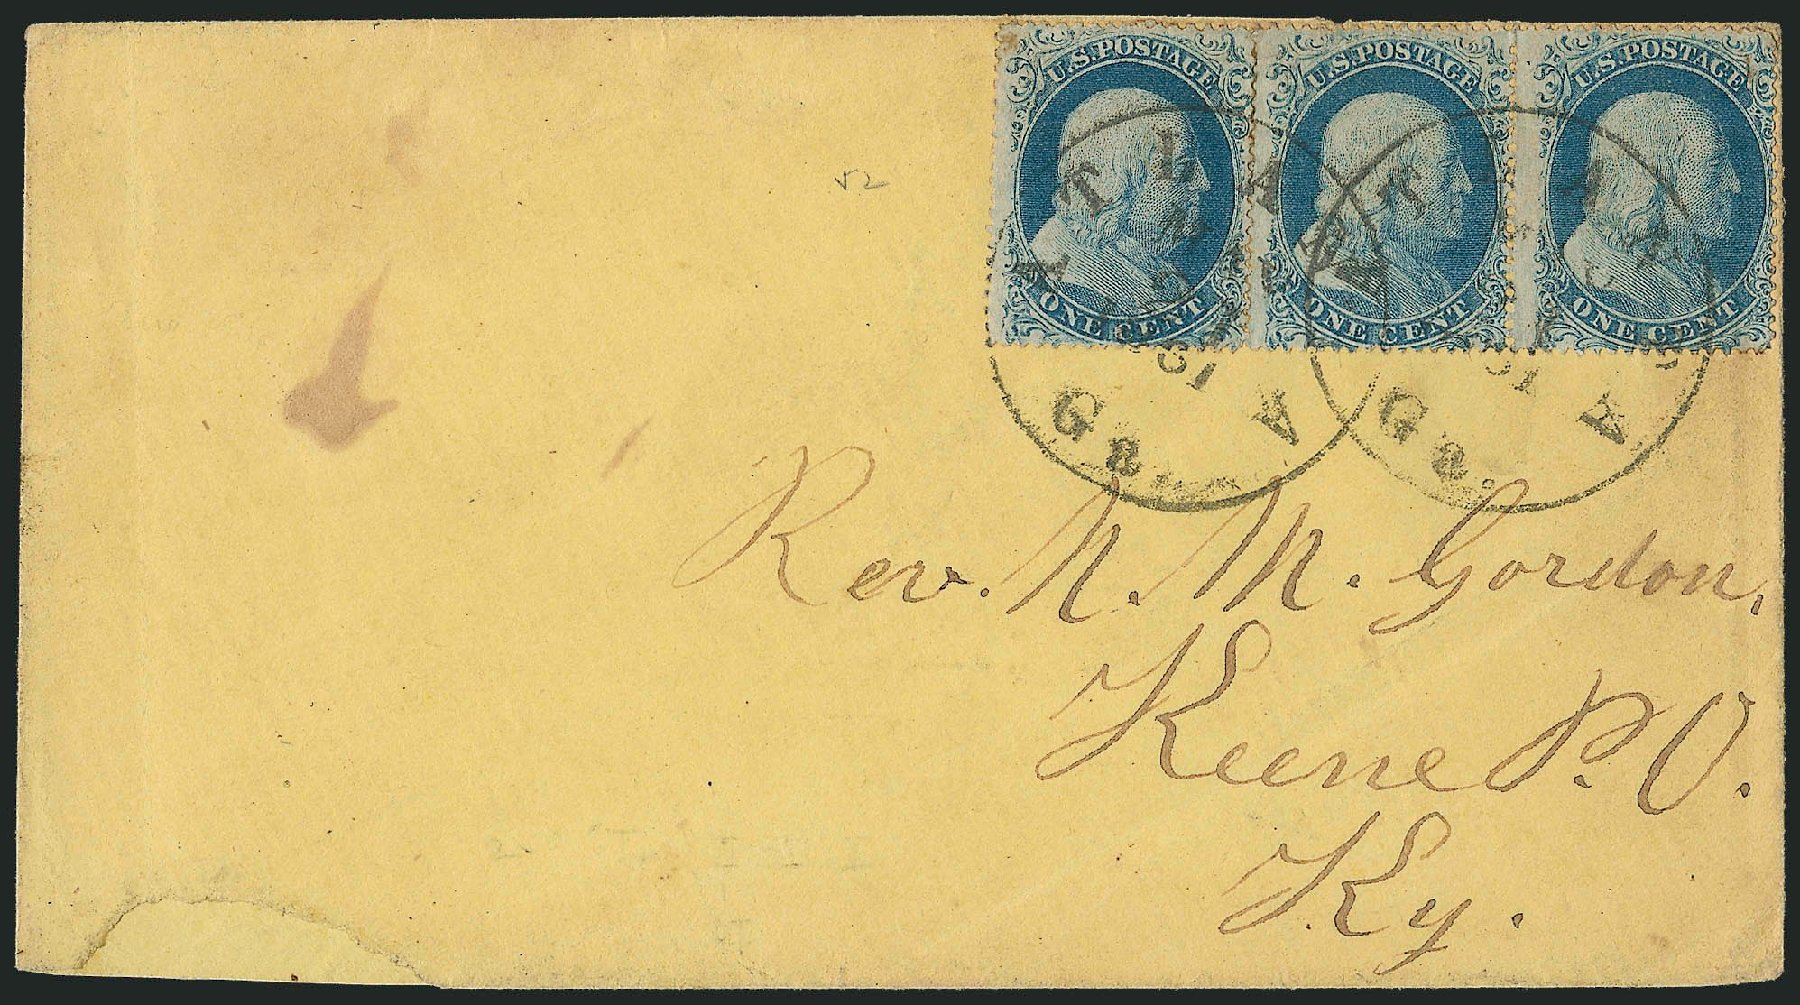 U.S. POSTAGE U.S. POSTAGE U.S. POSTAGE
ONE CENT ONE CENT ONE CENT
ATLANTA Ga.
ATLANTA Ga.
52
Rev. N. M. Gordon,
Keene P. O.
Ky.